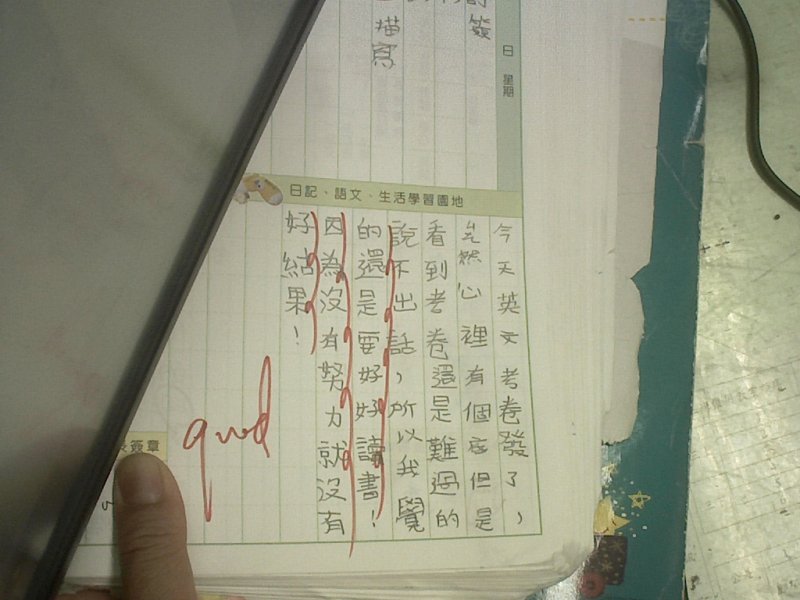 簽
描寫
日 星期
日記、語文、生活學習園地
今天英文考卷發了，
雖然心裡有個底但是
看到考卷還是難過的
說不出話，所以我覺
的還是要好好讀書！
因為沒有努力就沒有
好結果！
good
簽章